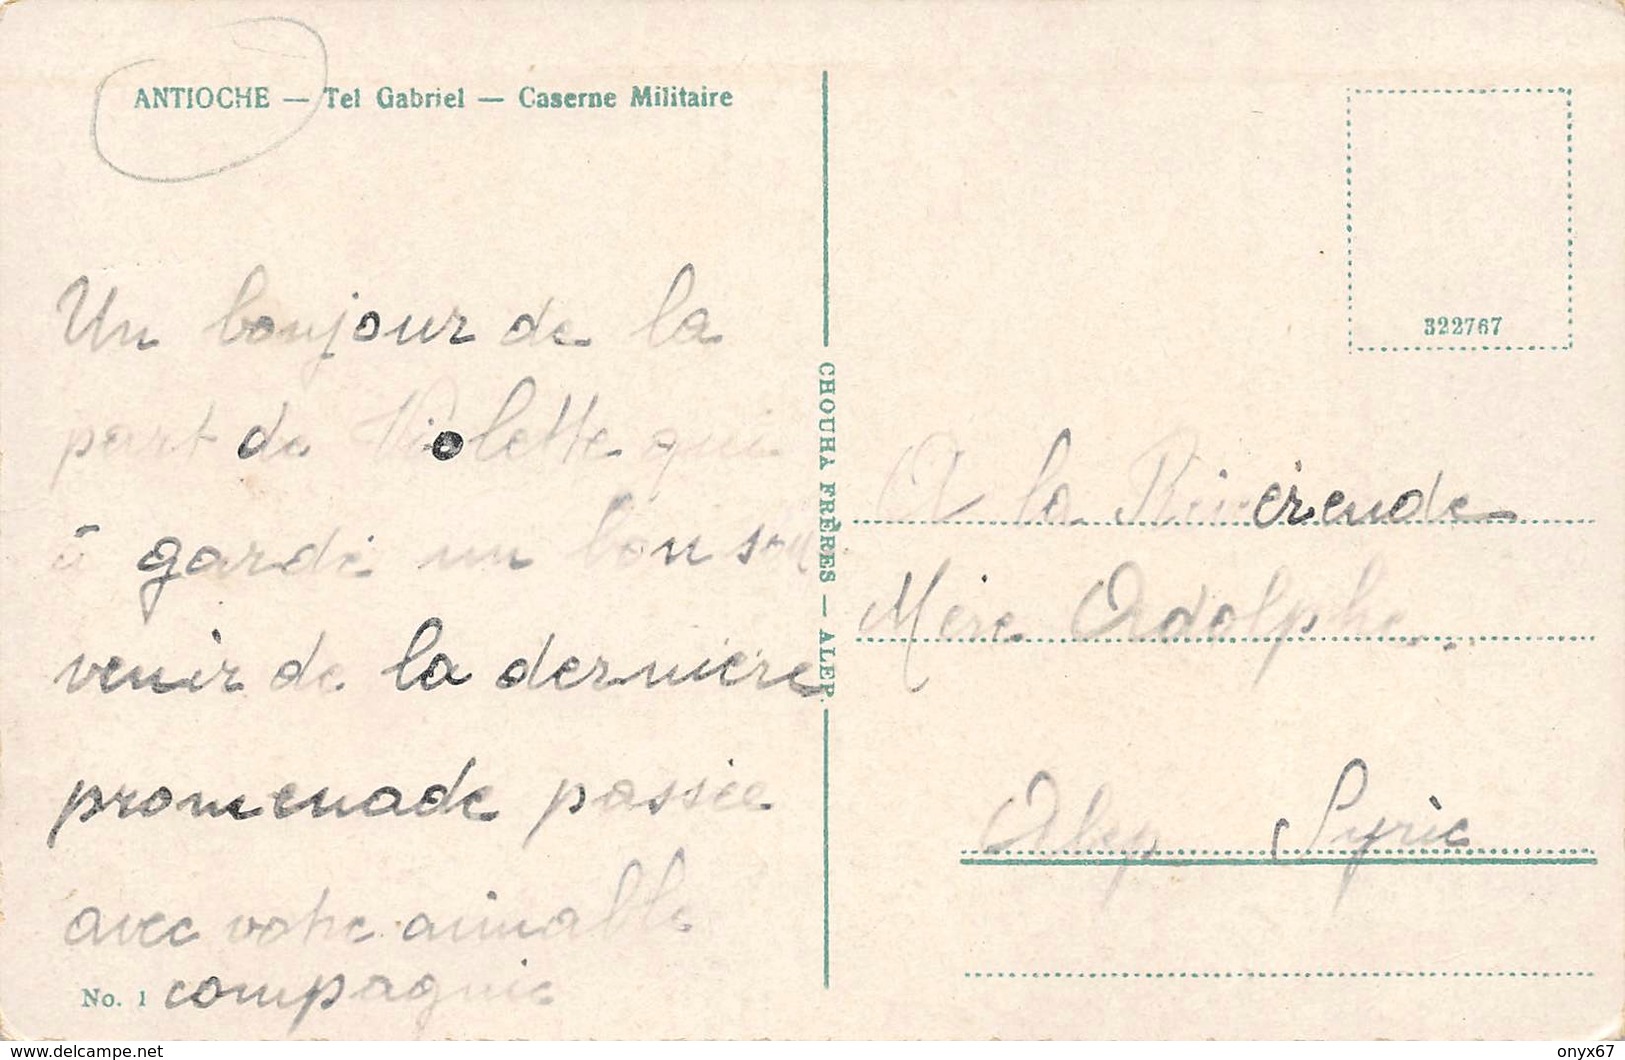 ANTIOCHE — Tel Gabriel — Caserne Militaire
Un bonjour de la
part de Violette qui
a gardé un bon sou
venir de la dernière
promenade passée
avec votre aimable
compagnie
No. 1
CHOUHA FRÈRES — ALEP.
322767
A la Révérende
Mère Adolphe..
Alep Syrie
www.delcampe.net
onyx67